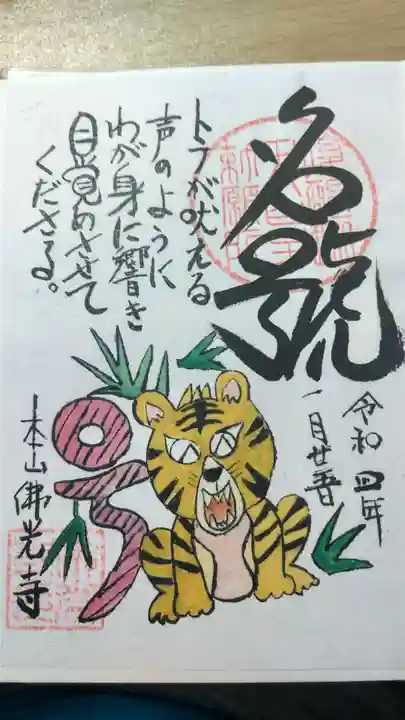 名號
トラが吠える
声のように
わが身に響き
目覚めさせて
くださる。
令和四年
一月廿五日
本山佛光寺